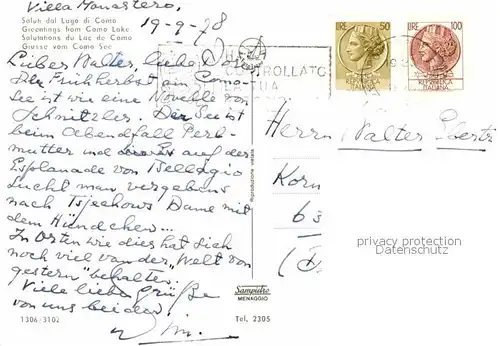 Villa Monastero,
19-9-78
Saluti dal Lago di Como
Greetings from Como Lake
Salutations du Lac de Como
Grusse vom Como See
Lieber Walter, liebe
Der Frühherbst am Como-
See ist wie eine Novelle von
Schnitzler. Der See ist
beim Abendfall Perl-
mutter und auf der
Esplanade von Bellagio
sucht man vergebens
nach Tsjechows Dame mit
dem Hündchen...
In Orten wie dies hat sich
noch viel van der „Welt von
gestern" behalten.
Viele liebe Grüße
von uns beiden.
Wim.
1306/3102
Sampietro
MENAGGIO
Tel. 2305
Riproduzione vietata
CONTROLLATO
LIRE 50
ITALIANA
LIRE 100
REPUBBLICA
ITALIANA
Herrn Walter
Korn
63
privacy protection
Datenschutz